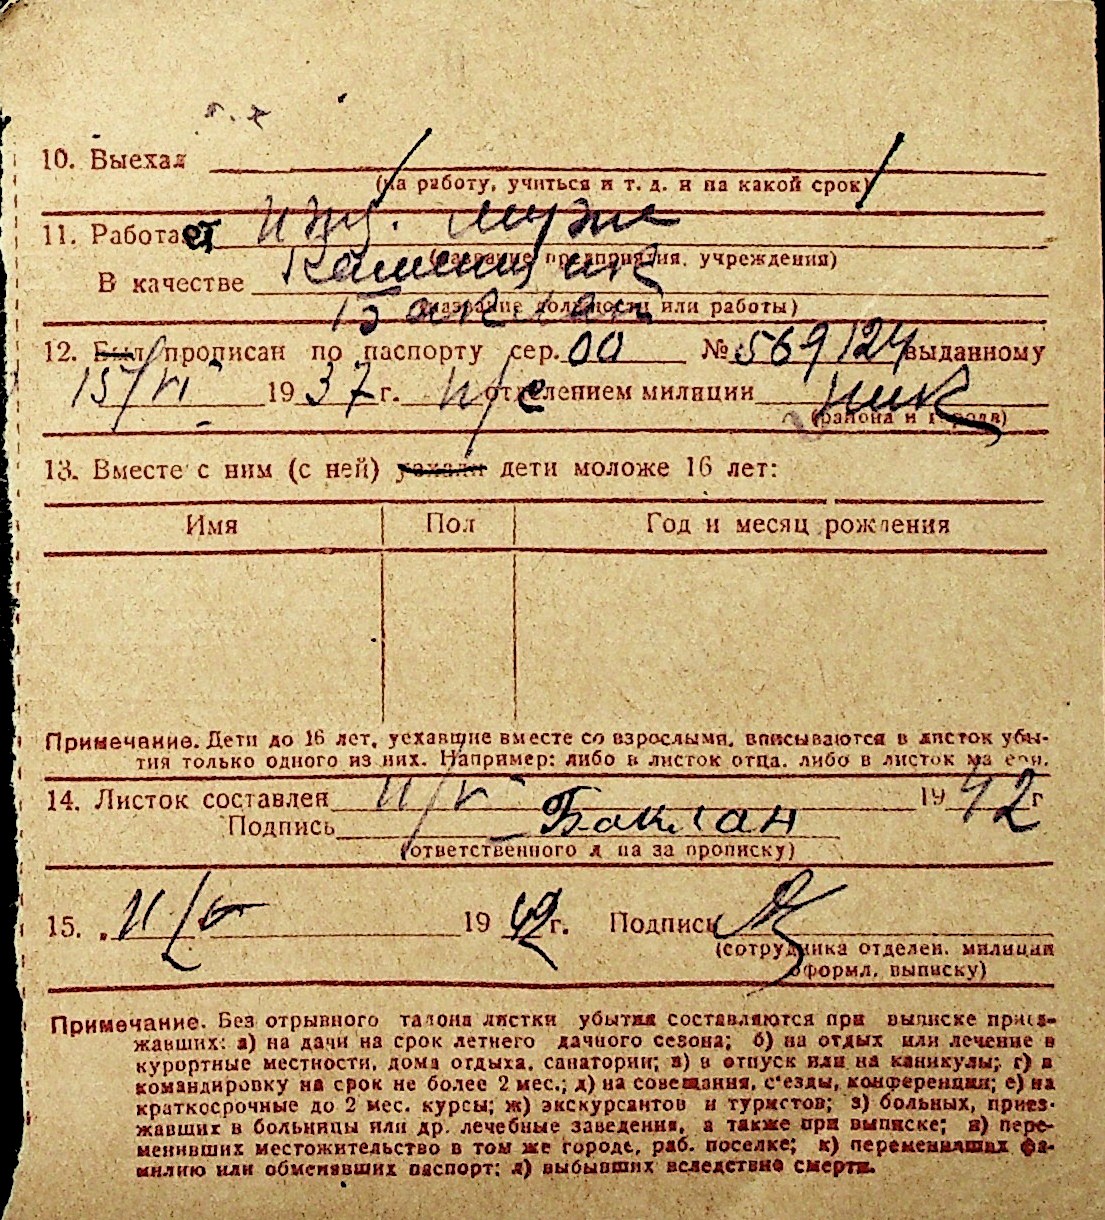 10. Выехал
(на работу, учиться и т. д. и на какой срок)
11. Работает ижд. мужа
(название предприятия, учреждения)
В качестве Каменщик
(название должности или работы)
Баклан
12. Был прописан по паспорту сер. 00 № 569124 выданному
15/VI 1937 г. отделением милиции НИК
(района и города)
13. Вместе с ним (с ней) уехали дети моложе 16 лет:
Имя Пол Год и месяц рождения
Примечание. Дети до 16 лет, уехавшие вместе со взрослыми, вписываются в листок убы-
тия только одного из них. Например: либо в листок отца, либо в листок матери.
14. Листок составлен 11/V 1942 г
Подпись Баклан
(ответственного лица за прописку)
15. 11/V 1942 г. Подпись
(сотрудника отделен. милиции
оформл. выписку)
Примечание. Без отрывного талона листки убытия составляются при выписке приез-
жавших: а) на дачи на срок летнего дачного сезона; б) на отдых или лечение в
курортные местности, дома отдыха, санатории; в) в отпуск или на каникулы; г) в
командировку на срок не более 2 мес.; д) на совещания, с'езды, конференции; е) на
краткосрочные до 2 мес. курсы; ж) экскурсантов и туристов; з) больных, приез-
жавших в больницы или др. лечебные заведения, а также при выписке; и) пере-
менивших местожительство в том же городе, раб. поселке; к) переменивших фа-
милию или обменявших паспорт; л) выбывших вследствие смерти.